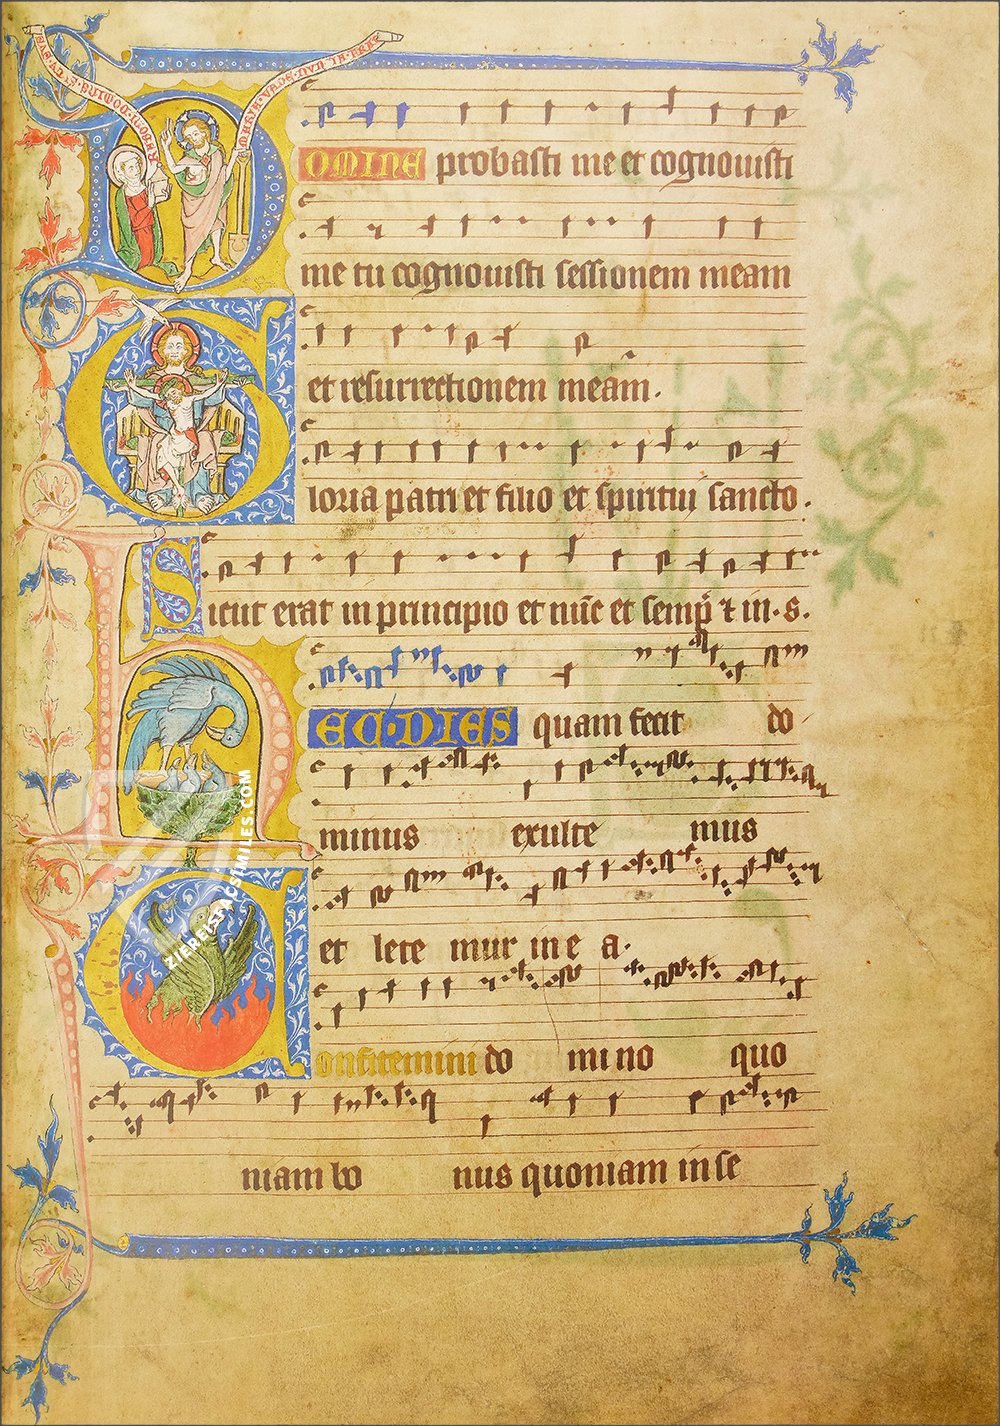 MARIA · VADE · NVN
DOMINE probasti me et cognouisti
me tu cognouisti sessionem meam
et resurrectionem meam.
Gloria patri et filio et spiritui sancto.
Sicut erat in principio et nūc et semp̄ ⁊ in · s.
HEC · DIES quam fecit do
minus exulte mus
et lete mur in e a.
Confitemini do mi no quo
niam bo nus quoniam in se
ZIEREISFACSIMILES.COM